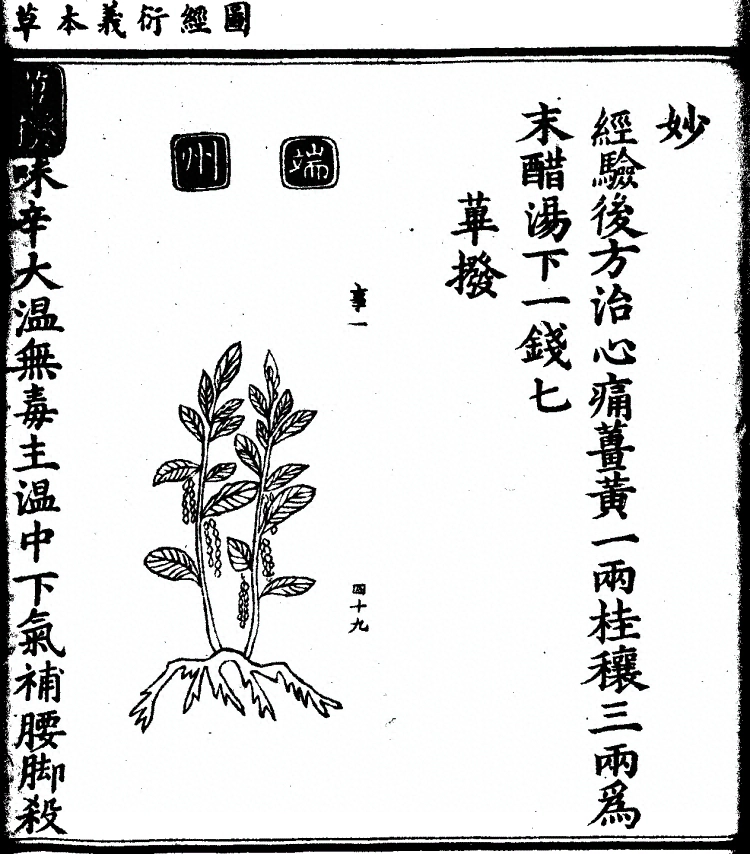 圖經衍義本草
妙
經驗後方治心痛薑黃一兩桂穰三兩爲
末醋湯下一錢七
蓽撥
端州
四十九
味辛大温無毒主温中下氣補腰脚殺